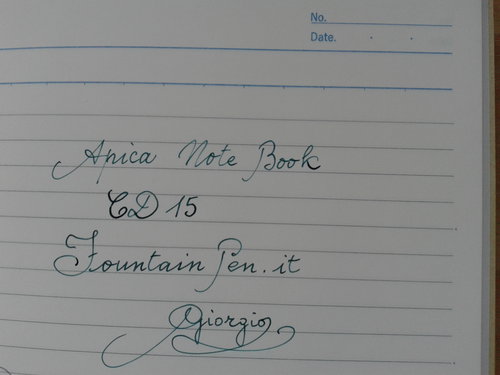 No.
Date. . .
Apica Note Book
CD 15
Fountain Pen.it
Giorgio.